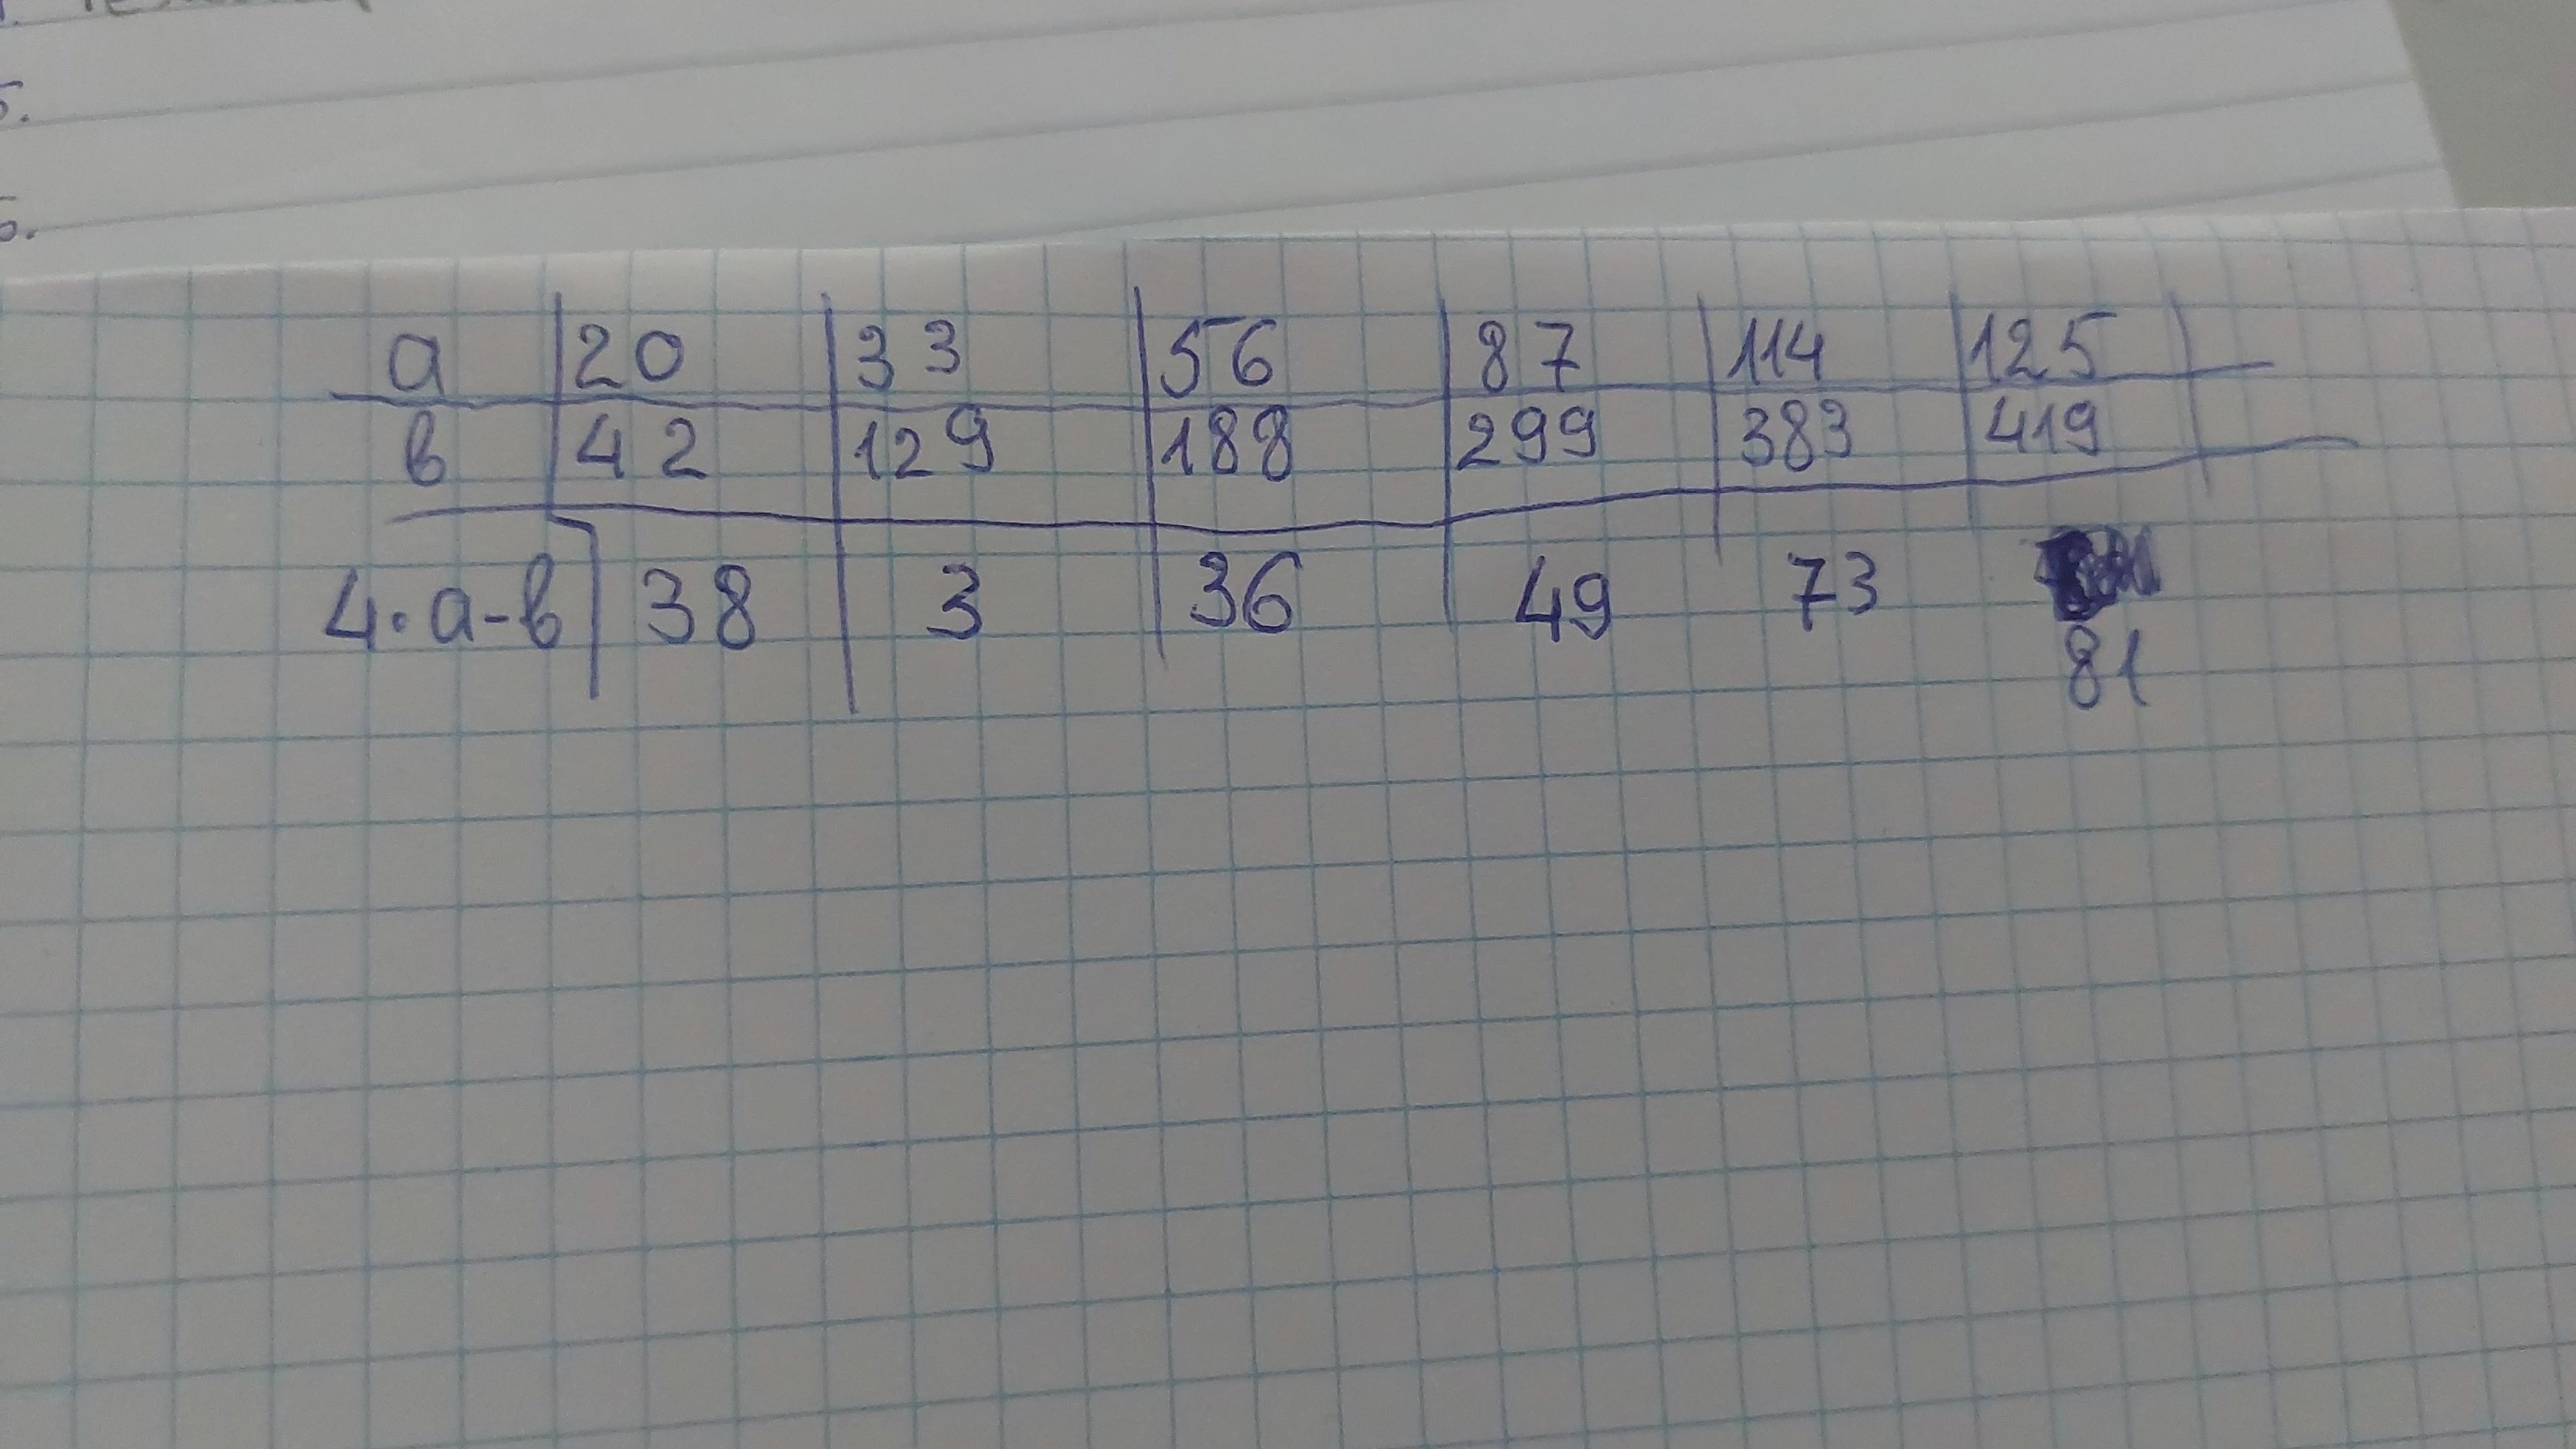 5.
а 20 33 56 87 114 125
в 42 129 188 299 383 419
4·а-в 38 3 36 49 73
81